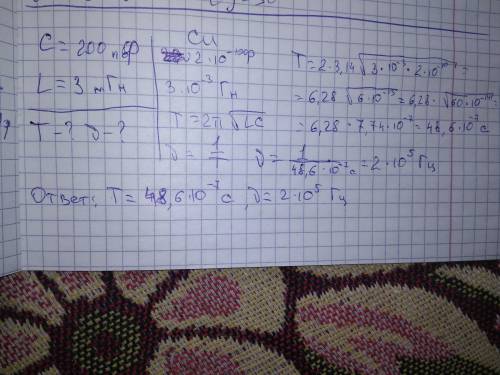 C = 200 пФ
L = 3 мГн
T-? ν-?
СИ
2·10⁻¹⁰Ф
3·10⁻³ Гн
T = 2π√LC
ν = 1/T
T = 2·3,14√3·10⁻³·2·10⁻¹⁰ =
= 6,28 √6·10⁻¹³ = 6,28·√60·10⁻¹⁴
= 6,28 · 7,74·10⁻⁷ = 48,6·10⁻⁷ с
ν = 1/48,6·10⁻⁷с = 2·10⁵ Гц
Ответ: T = 48,6·10⁻⁷ с, ν = 2·10⁵ Гц